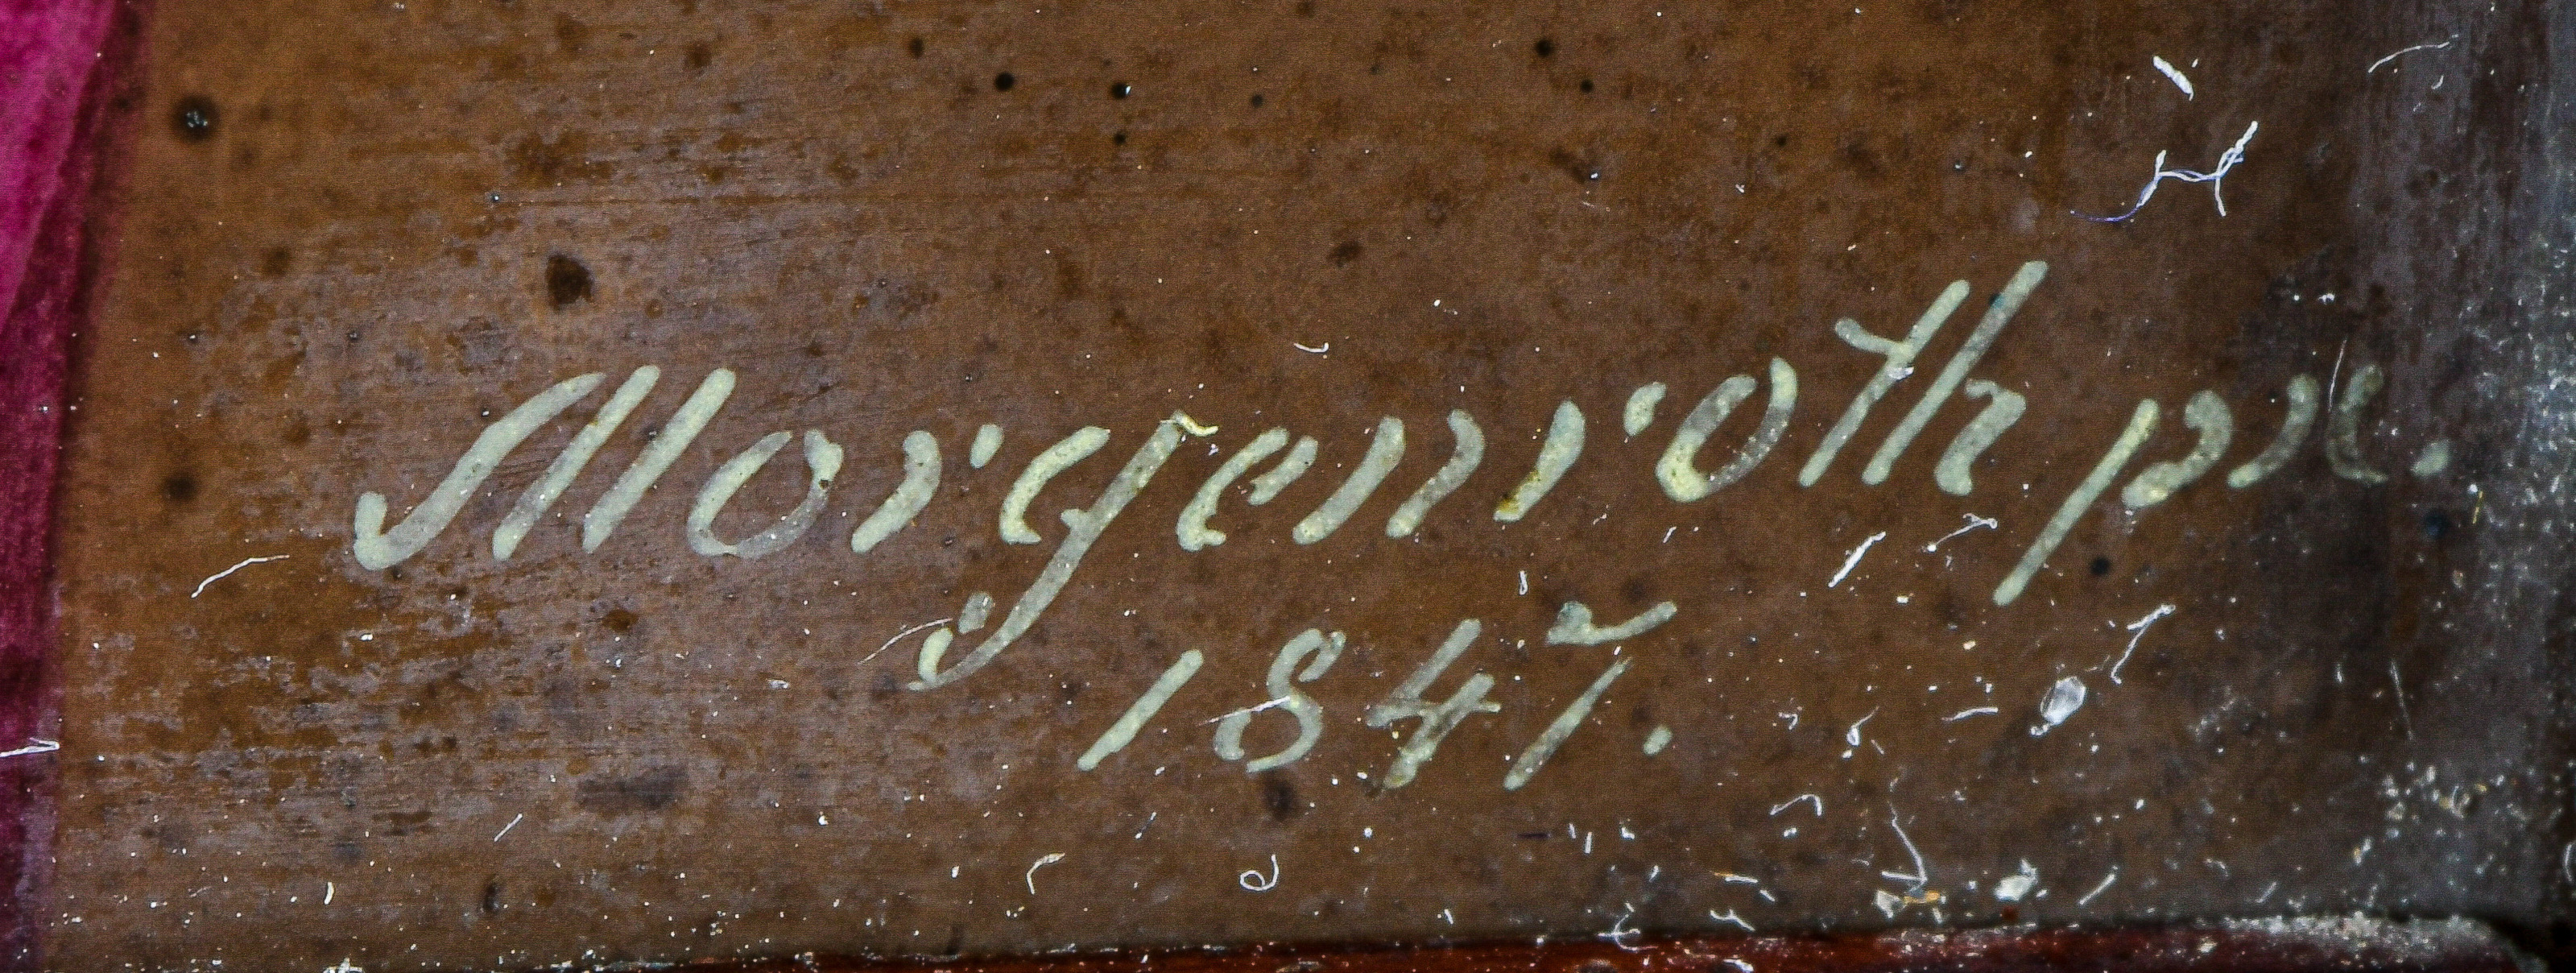 Morgenroth px.
1847.